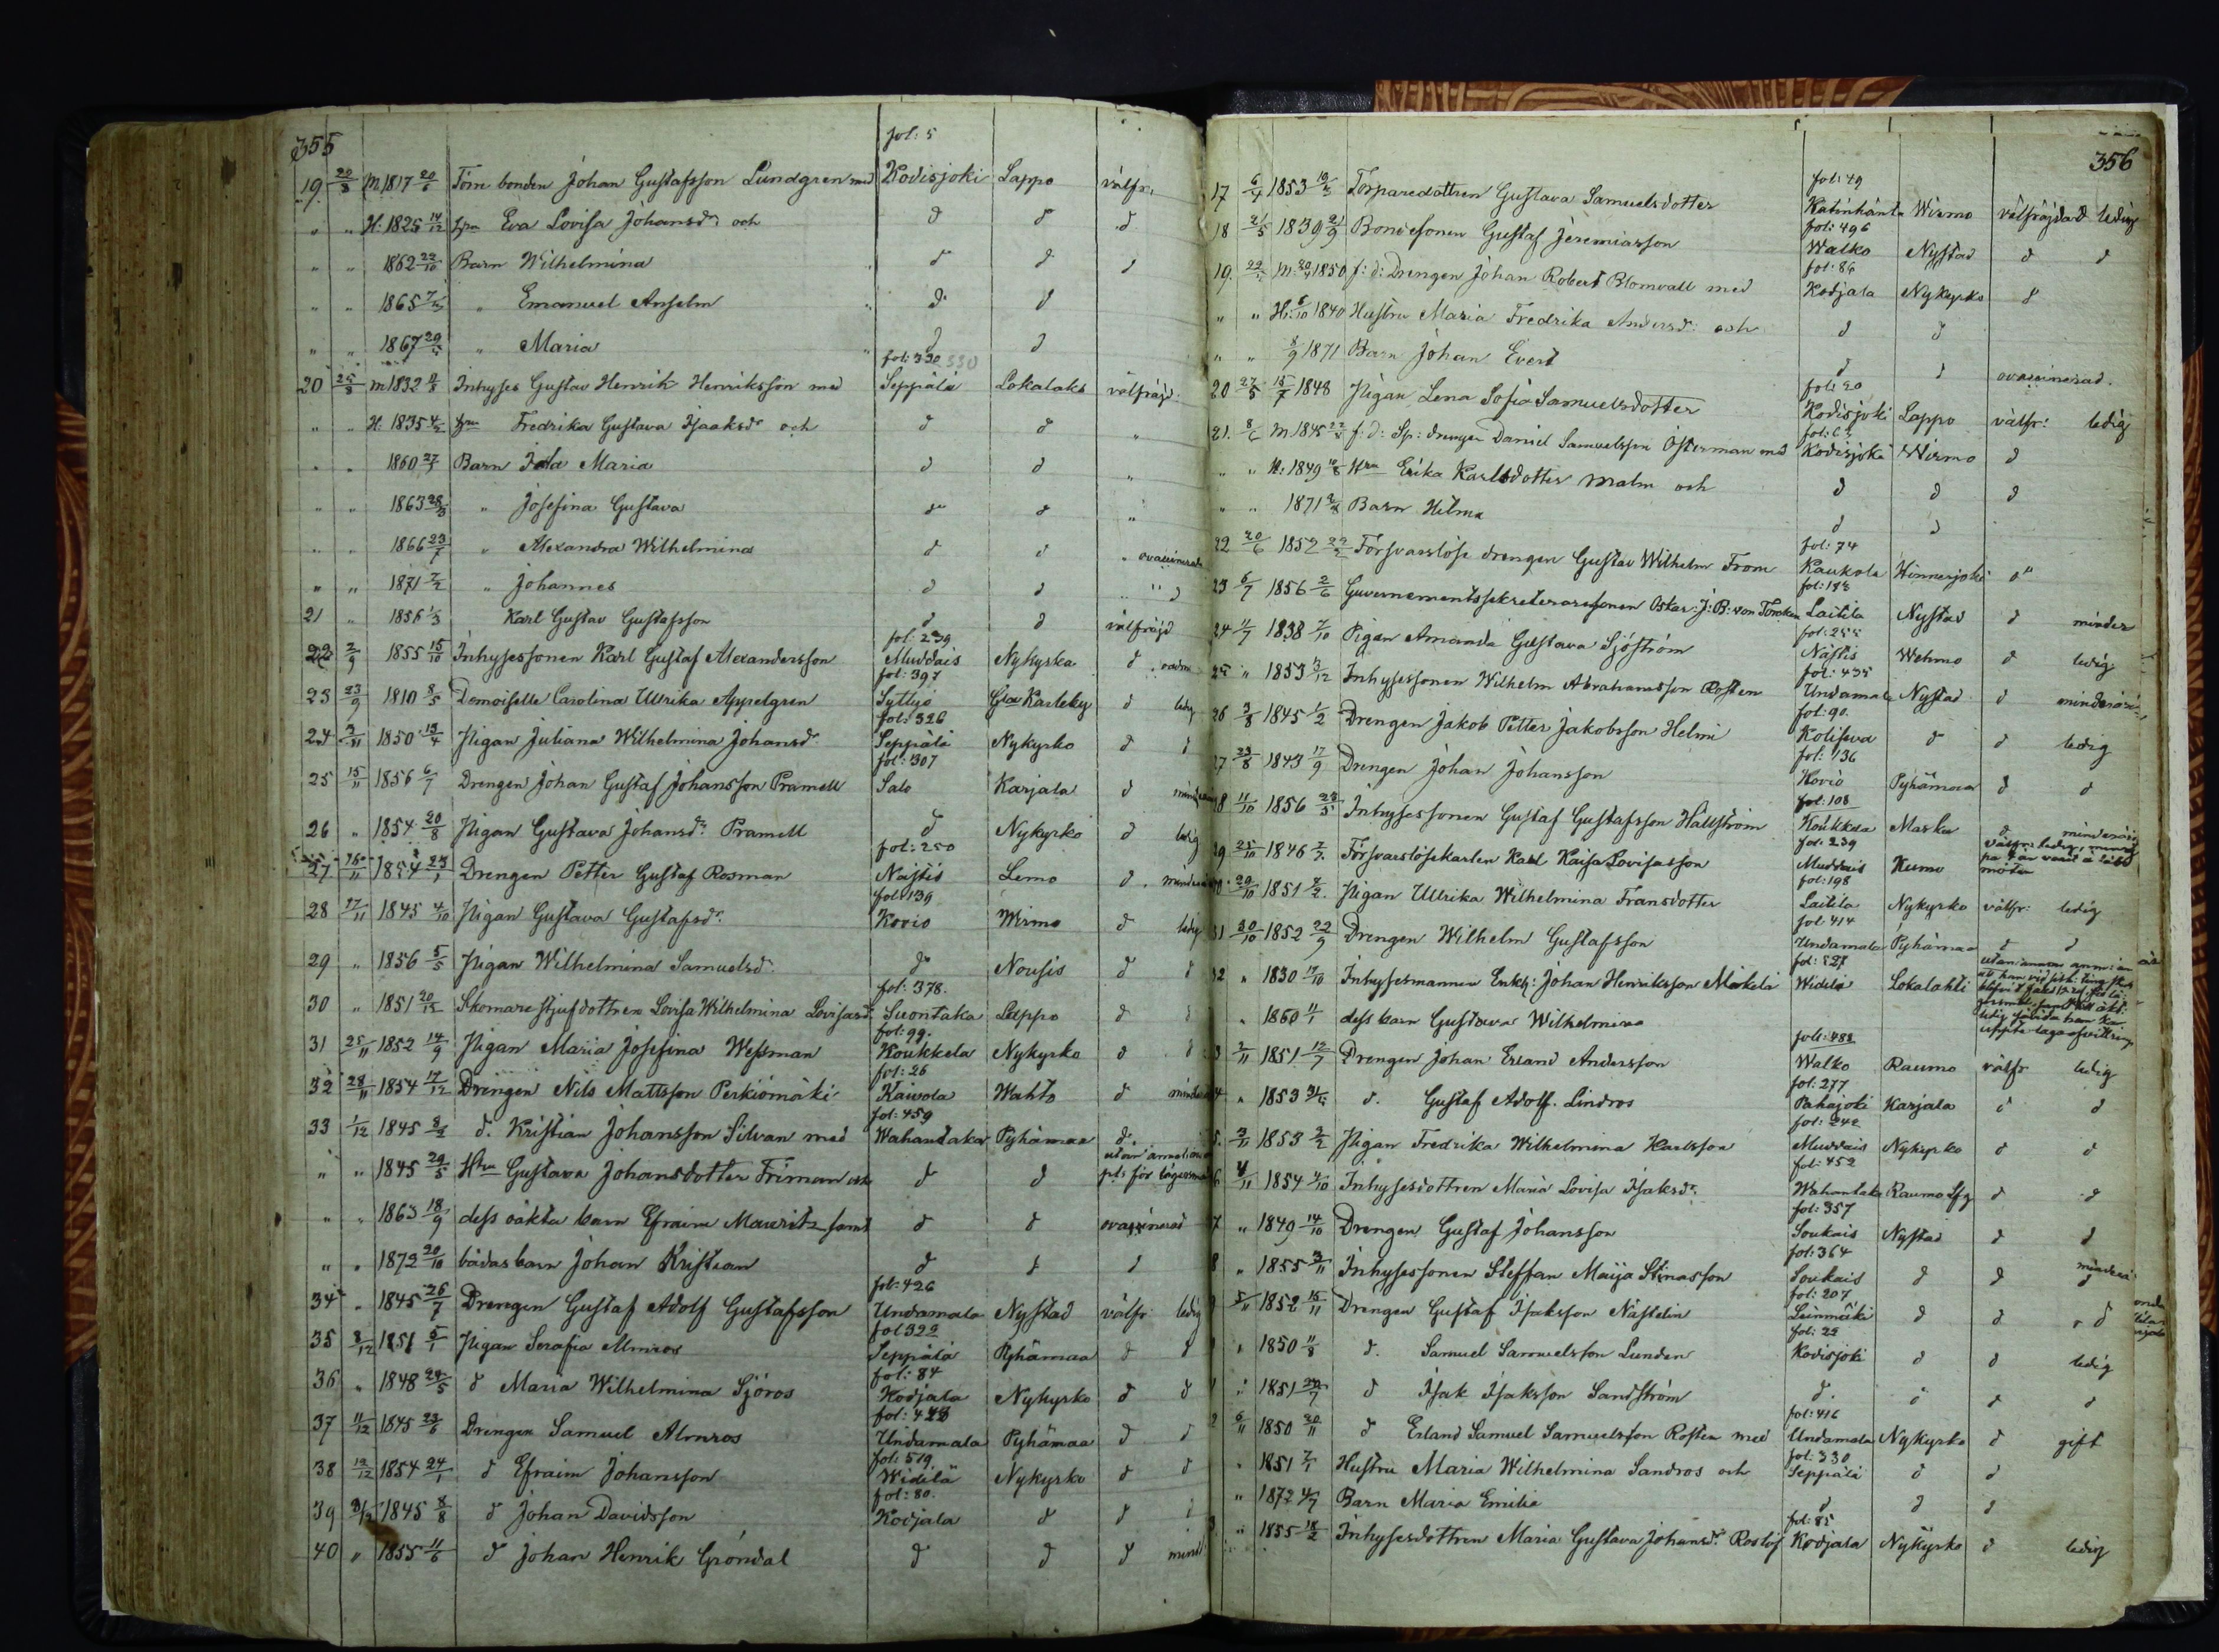 355
fol: 5
19 20/3 M. 1817 20/6 Torn bonden Johan Gustafsson Lundgren med Kodisjoki Lappo välfr:
" " H: 1825 14/12 Hru Eva Lovisa Johansdr och d d d
" " 1862 22/10 Barn Wilhelmina d d d
" " 1865 " Emanuel Anselm d d
" " 1867 29/5 " Maria d d
fol: 330 330
20 25/8 M 1832 Inhyses Gustav Henrik Henriksson med Seppälä Lokalaks välfräjd:
" " H. 1835 Hru Fredrika Gustava Isaaksdr och d d "
" " 1860 Barn Ida Maria d d "
" " 1863 " Josefina Gustava do d "
" " 1866 23/7 " Alexandra Wilhelmina d d " ovaccinerad
" " 1871 7/2 " Johannes d d " " d
21 " 1856 1/3 Karl Gustav Gustafsson d d välfräjd
fol: 239
22 2/9 1855 15/10 Inhysessonen Karl Gustaf Alexandersson Muddais Nykyrka d
fol: 397
23 23/9 1810 8/5 Demoiselle Carolina Ulrika Appelgren Syttyö Gla Karleby d ledig
fol: 326
24 2/11 1850 13/4 Pigan Juliana Wilhelmina Johansd: Seppälä Nykyrko d d
fol: 307
25 15/11 1856 6/7 Drengen Johan Gustaf Johansson Pramell Salo Karjala d
26 " 1854 20/8 Pigan Gustava Johansdr: Pramell d Nykyrko d ledig
fol: 250
27 16/11 1854 23/1 Drengen Petter Gustaf Rosman Najtis Lemo d.
fol: 139
28 17/11 1845 4/10 Pigan Gustava Gustafsdr. Kovio Wirmo d ledig
29 " 1856 5/5 Pigan Wilhelmina Samuelsdr do Nousis d d
fol: 378.
30 " 1851 20/12 Skomare stjufdottren Lovisa Wilhelmina Lovisasdr Suontaka Lappo d d
fol: 99.
31 25/11 1852 14/9 Pigan Maria Josefina Wessman Koukkela Nykyrko d d
fol: 26
32 28/11 1854 17/12 Drengen Nils Mattsson Perkiömäki Kaivola Wahto d
fol: 459
33 1/12 1845 2/2 d. Kristian Johansson Silvan med Wahantaka Pyhämaa d.
" " 1845 29/5 Hru Gustava Johansdotter Friman och d d
" " 1863 18/9 dess oäkta barn Efraim Mauritz samt d d ovaccinerad
" " 1872 20/10 bådas barn Johan Kristian d d d
fol: 426
34 " 1845 26/7 Drengen Gustaf Adolf Gustafsson Undamala Nystad välfr: ledig
fol 322
35 8/12 1851 5/1 Pigan Serafia Almros Seppälä Pyhämaa d d
fol: 84
36 " 1848 28/5 d Maria Wilhelmina Sjöros Kodjala Nykyrko d d
fol: 428
37 11/12 1845 23/6 Drengen Samuel Almros Undamala Pyhämaa d d
fol: 519.
38 12/12 1854 24/1 d Efraim Johansson Widilä Nykyrko d d
fol: 80.
39 1845 8/8 d Johan Davidsson Kodjala d d d
40 " 1855 11/6 d Johan Henrik Gröndal d d d mind:
356
fol: 49
17 6/4 1853 Torparedottren Gustava Samuelsdotter Katinhänta Wirmo välfräjdad ledig
fol: 496
18 2/5 1839 21/9 Bondesonen Gustaf Jeremiasson Walko Nystad d d
fol: 86
19. M. 1850 f: d: Drengen Johan Robert Blomvall med Kodjala Nykyrko d
" " H: 6/10 1840 Hustru Maria Fredrika Andersdr: och d d
" " 8/9 1871 Barn Johan Evert d d ovaccinerad.
fol: 20
20 27/5 15/7 1848 Pigan Lena Sofia Samuelsdotter Kodisjoki Lappo välfr: ledig
21. 8/6 M 1845 f: d: Sp: drengen Daniel Samuelsson Österman med Kodisjoki Wirmo d
" " H: 1849 Hru Erika Karlsdotter Malm och d d d
" " 1871 Barn Hilma d d
fol: 74
22 20/6 1852 22/2 Försvarslöse drengen Gustav Wilhelm From Kaukola Hinnerjoki d"
23 6/7 1856 2/6 Guvernementssekreteraresonen Oskar J: B: von Laitila Nystad d minder
fol: 255
24 11/7 1838 7/10 Pigan Amanda Gustava Sjöström Nästis Wehmo d ledig
fol: 435
25 " 1853 Inhysessonen Wilhelm Abrahamsson Rosten Undamala Nystad d
fol: 90.
26 3/8 1845 1/2 Drengen Jakob Petter Jakobsson Helmi Koliseva d d ledig
fol: 136
27 23/8 1843 17/9 Drengen Johan Johansson Kovio Pyhämaa d d
fol: 108
28 11/10 1856 Inhysessonen Gustaf Gustafsson Hallström Koukkela Masku d
fol: 239
29 25/10 1846 Försvarslösekarlen Karl Kaisa Lovisasson Muddais Kumo
fol: 198
30 29/10 1851 Pigan Ulrika Wilhelmina Fransdotter Laitila Nykyrko välfr: ledig
fol: 414
31 30/10 1852 22/9 Drengen Wilhelm Gustafsson Undamala Pyhämaa d d
fol: 527
32 " 1830 17/10 Inhysesmannen Enkl: Johan Henriksson Mäkelä Widilä Lokalahti
" 1860 11/1 dess barn Gustava Wilhelmina
fol: 488
3 2/11 1851 12/7 Drengen Johan Erland Andersson Walko Raumo välfr ledig
fol: 277
4 " 1853 d. Gustaf Adolf Lindros Pahajoki Karjala d d
fol: 242
5. 3/11 1853 2/2 Pigan Fredrika Wilhelmina Karlsson Muddais Nykyrko d d
fol: 452
6 4/11 1854 4/10 Inhysesdottren Maria Lovisa Isaksdr: Wahantaka Raumo Lfg d d
fol: 357
7 " 1849 14/10 Drengen Gustaf Johansson Soukais Nystad d d
fol: 364
8 " 1855 3/11 Inhysessonen Steffan Maija Stinasson Soukais d d
fol: 207
9 5/11 1852 15/11 Drengen Gustaf Isaksson Nästelin Leinmäki d d d
fol: 22
" 1850 11/8 d. Samuel Samuelsson Lunden Kodisjoki d d ledig
" 1851 d Isak Isaksson Sandström d. d d d
fol: 416
2 6/11 1850 20/11 d Erland Samuel Samuelsson Rosten med Undamala Nykyrko d gift
fol: 330
" 1851 7/1 Hustru Maria Wilhelmina Sandros och Seppälä d d
" 1872 4/7 Barn Maria Emilia d d d
fol: 85
" 1855 18/2 Inhysesdottren Maria Gustava Johansdr. Roslöf Kodjala Nykyrko d ledig